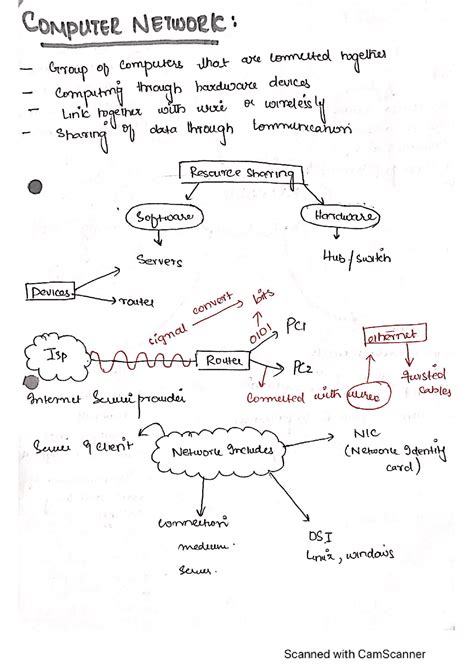 COMPUTER NETWORK:
- Group of computers that are connected together
- Computing through hardware devices
- Link together with wire or wirelessly
- Sharing of data through communication
Resource Sharing
Software
Hardware
Servers
Hub/switch
Devices
router
signal convert bits
Isp
Router
0101
PC1
PC2
ethernet
twisted
cables
Connected with wires
Internet provider
& Client
Network Includes
NIC
(Network Identity
card)
Connection
medium.
OSI
Linix, windows
Scanned with CamScanner